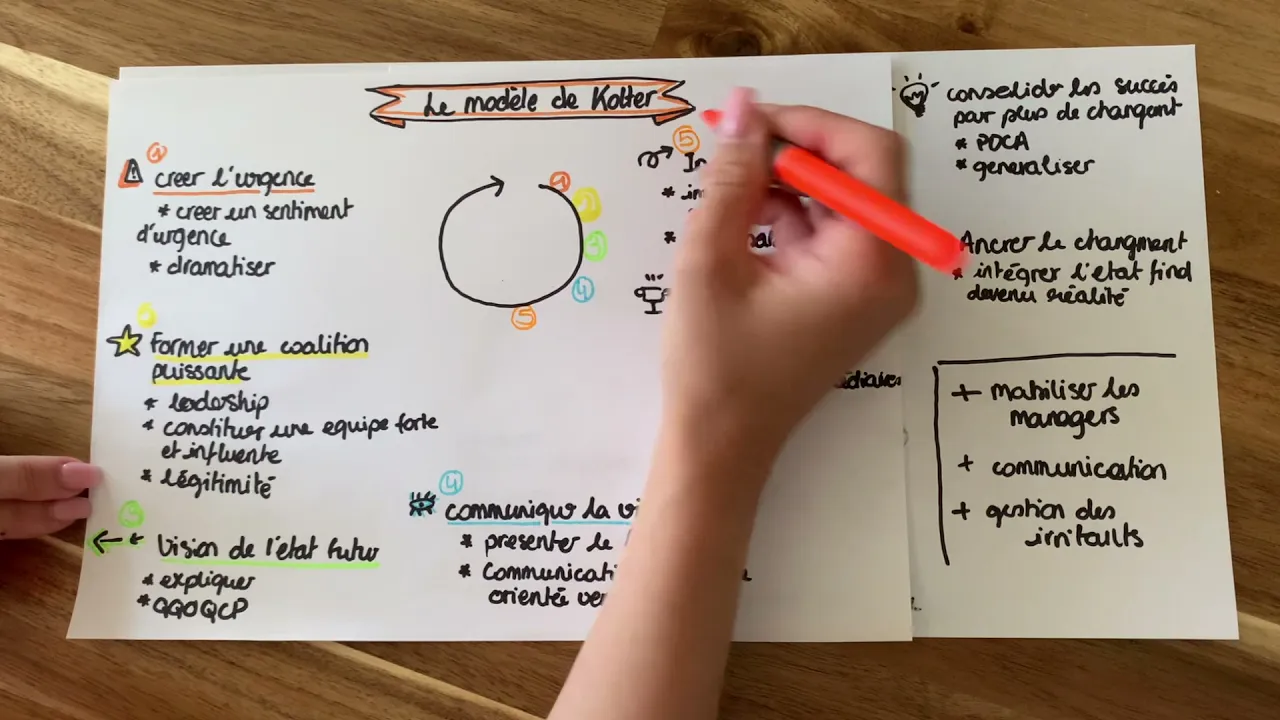 Le modèle de Kotter
1
creer l'urgence
* creer un sentiment
d'urgence
* dramatiser
2
Former une coalition
puissante
* leadership
* constituer une equipe forte
et influente
* légitimité
3
Vision de l'état futur
* expliquer
* QQOQCP
1
2
3
4
5
4
communiquer la vi
* presenter le
* Communicati
orientée ver
5
In
*
*
consolider les succès
pour plus de changent
* PDCA
* generaliser
Ancrer le changment
* intégrer l'etat find
devenu réalité
+ mobiliser les
managers
+ communication
+ gestion des
irritaults